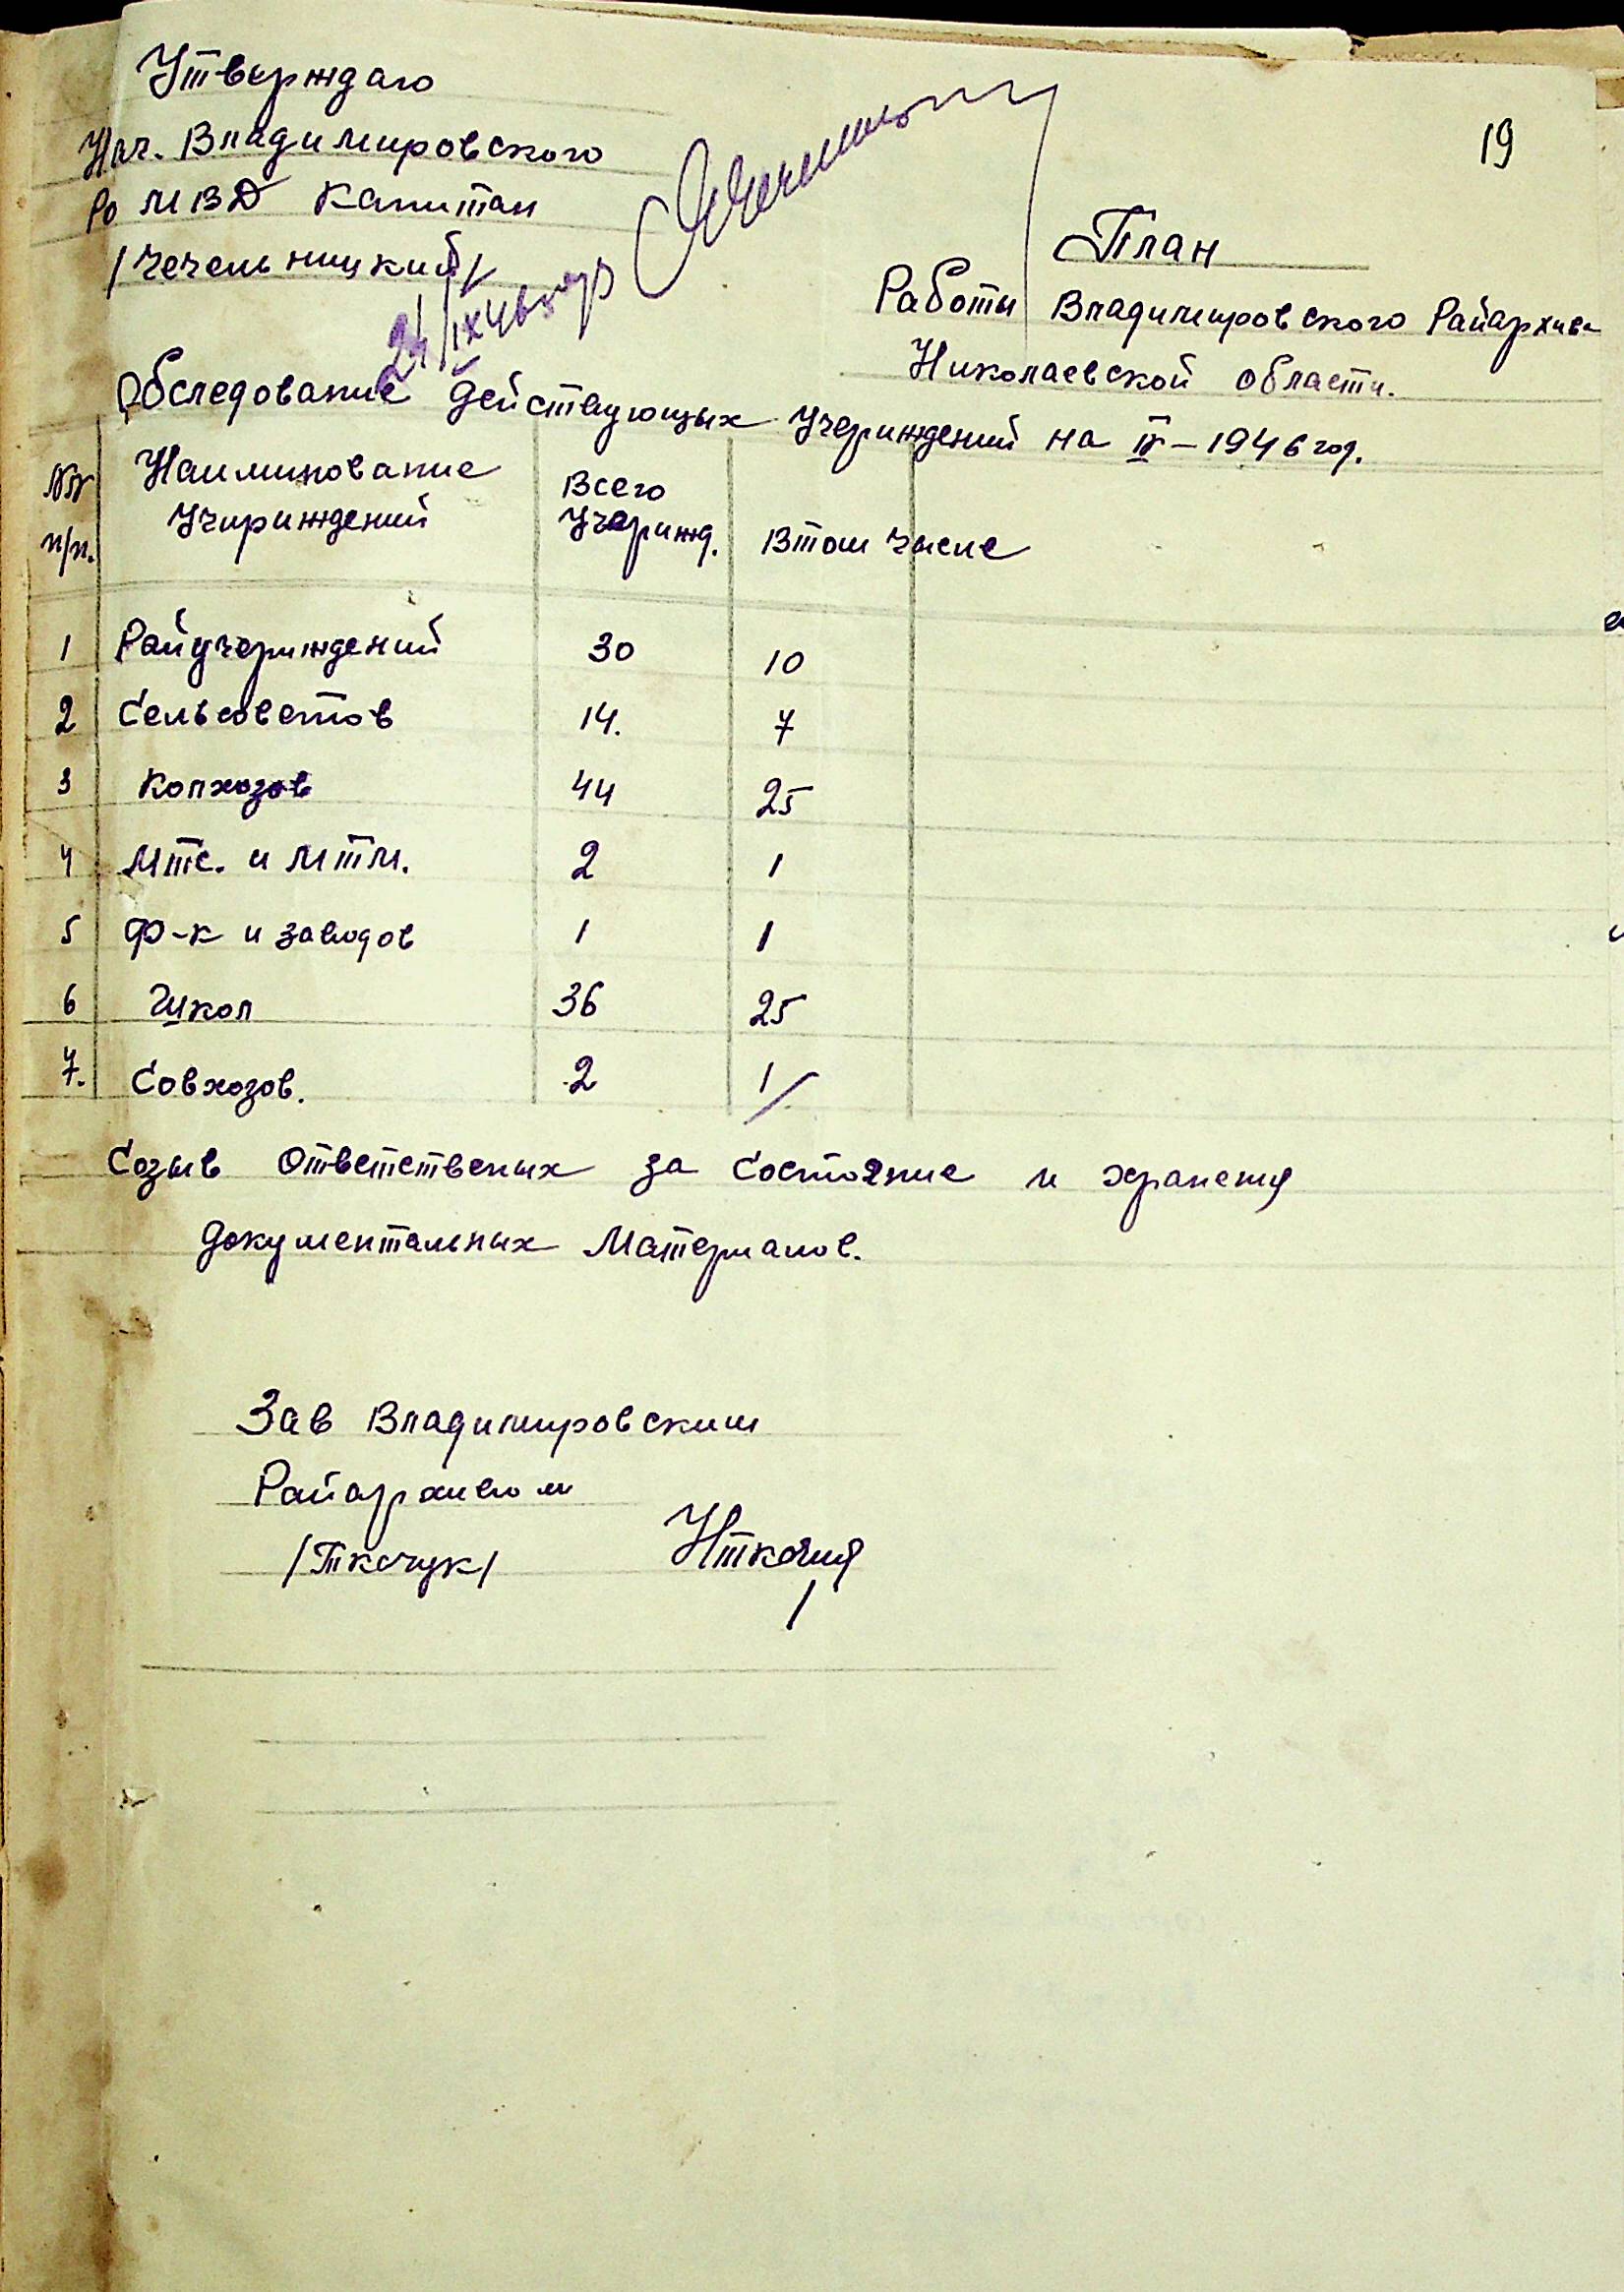 19
Утверждаю
Нач. Владимировского
Ро МВД Капитан
/Чечельницкий/
24/IX 46 
План
Работы Владимировского Райархива
Николаевской области.
Обследование действующых Учериждений на IV – 1946 год.
№№ п/п. | Наиминование Учириждений | Всего Учерижд. | Втом числе
1 Райучериждений 30 10
2 Сельсоветов 14. 7
3 Колхозов 44 25
4 Мтс. и МТМ. 2 1
5 Ф-к и заводов 1 1
6 Школ 36 25
7. Совхозов. 2 1
Созыв Ответственых за Состояние и хранения
документальных Материалов.
Зав Владимировским
Райархивом
/Ткачук/